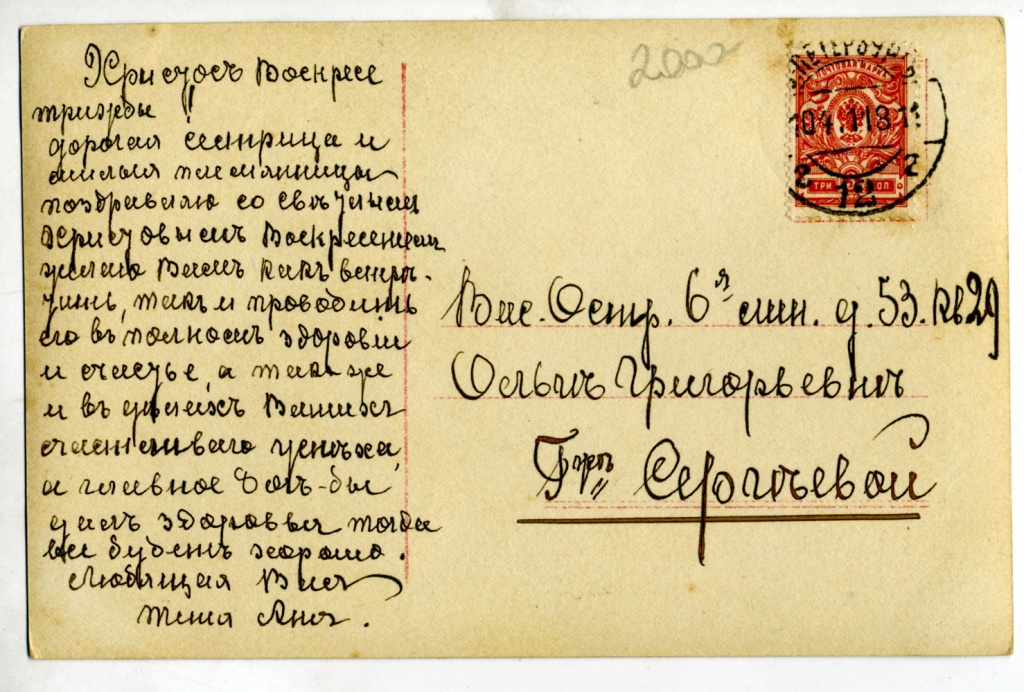 Христосъ Воскресе
трижды!
дорогая сестрица и
милыя племянницы
поздравляю со Свѣтлымъ
Христовымъ Воскресеніемъ
желаю Вамъ какъ встрѣ-
тить, такъ и проводить
его въ полномъ здоровіи
и счастье, а также
и въ дѣлахъ Вашихъ
счастливаго успѣха,
а главное Богъ-бы
далъ здоровья тогда
все будетъ хорошо.
Любящая Васъ
тетя
2000
С.ПЕТЕРБУРГЪ
ПОЧТОВАЯ МАРКА
04.1113
г 12 г
ТРИ КОП.
Вас. Остр. 6я лин. д. 53. кв 29
Ольгѣ Григорьевнѣ
Гжѣ Сергѣевой